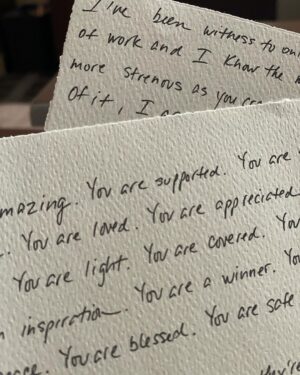 I've been witness to
of work and I know the
more strenous as you
Of it, I
mazing. You are supported. You are
. You are loved. You are appreciated
You are light. You are covered. You
inspiration. You are a winner. You
. You are blessed. You are safe